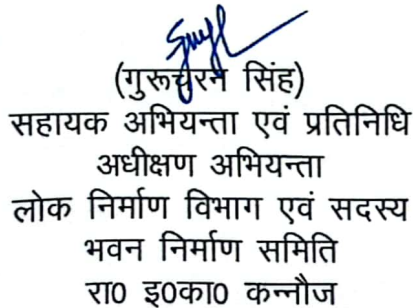 (गुरूचरन सिंह)
सहायक अभियन्ता एवं प्रतिनिधि
अधीक्षण अभियन्ता
लोक निर्माण विभाग एवं सदस्य
भवन निर्माण समिति
रा0 इ0का0 कन्नौज